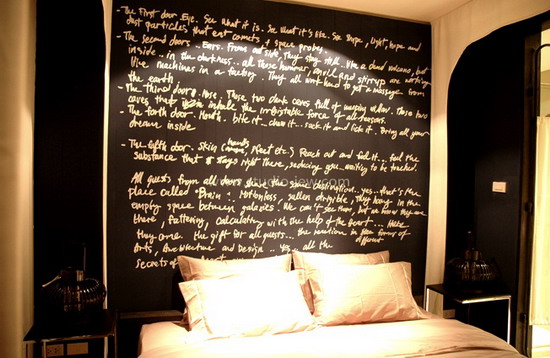 - The First door. Eye. See what it is. See what it's like. See shape, light, hope and
dust particles that eat comets, & space probes.
- The second doors.. Ears. From outside, they stay still, like a dead volcano, but
inside.. in the darkness.. all those hammer, anvil and stirrup are working
like machines in a factory. They all work hard to get a message from
the earth.
- The third doors. Nose. These two dark caves full of weeping willow. These two
caves that inhale the irresistable force of all seasons.
- The forth door. Mouth. bite it.. chew it.. suck it and lick it. Bring all your
dreams inside
- The fifth door. Skin (hands, feet etc.) Reach out and feel it... feel the
substance that stays right there, seducing you.. waiting to be touched.
All guests from all doors have the same destination.. yes.. that's the
place called "Brain". Motionless, sullen or visible, they hang in the
empty space between galaxies. We can't see them, but we know they are
there, pattering, calculating with the help of the heart.... Here
they are the gift for all guests... the in new forms of
different
Arts, Architecture and Design .. Yes.. all the
secrets of
studio-jew.com